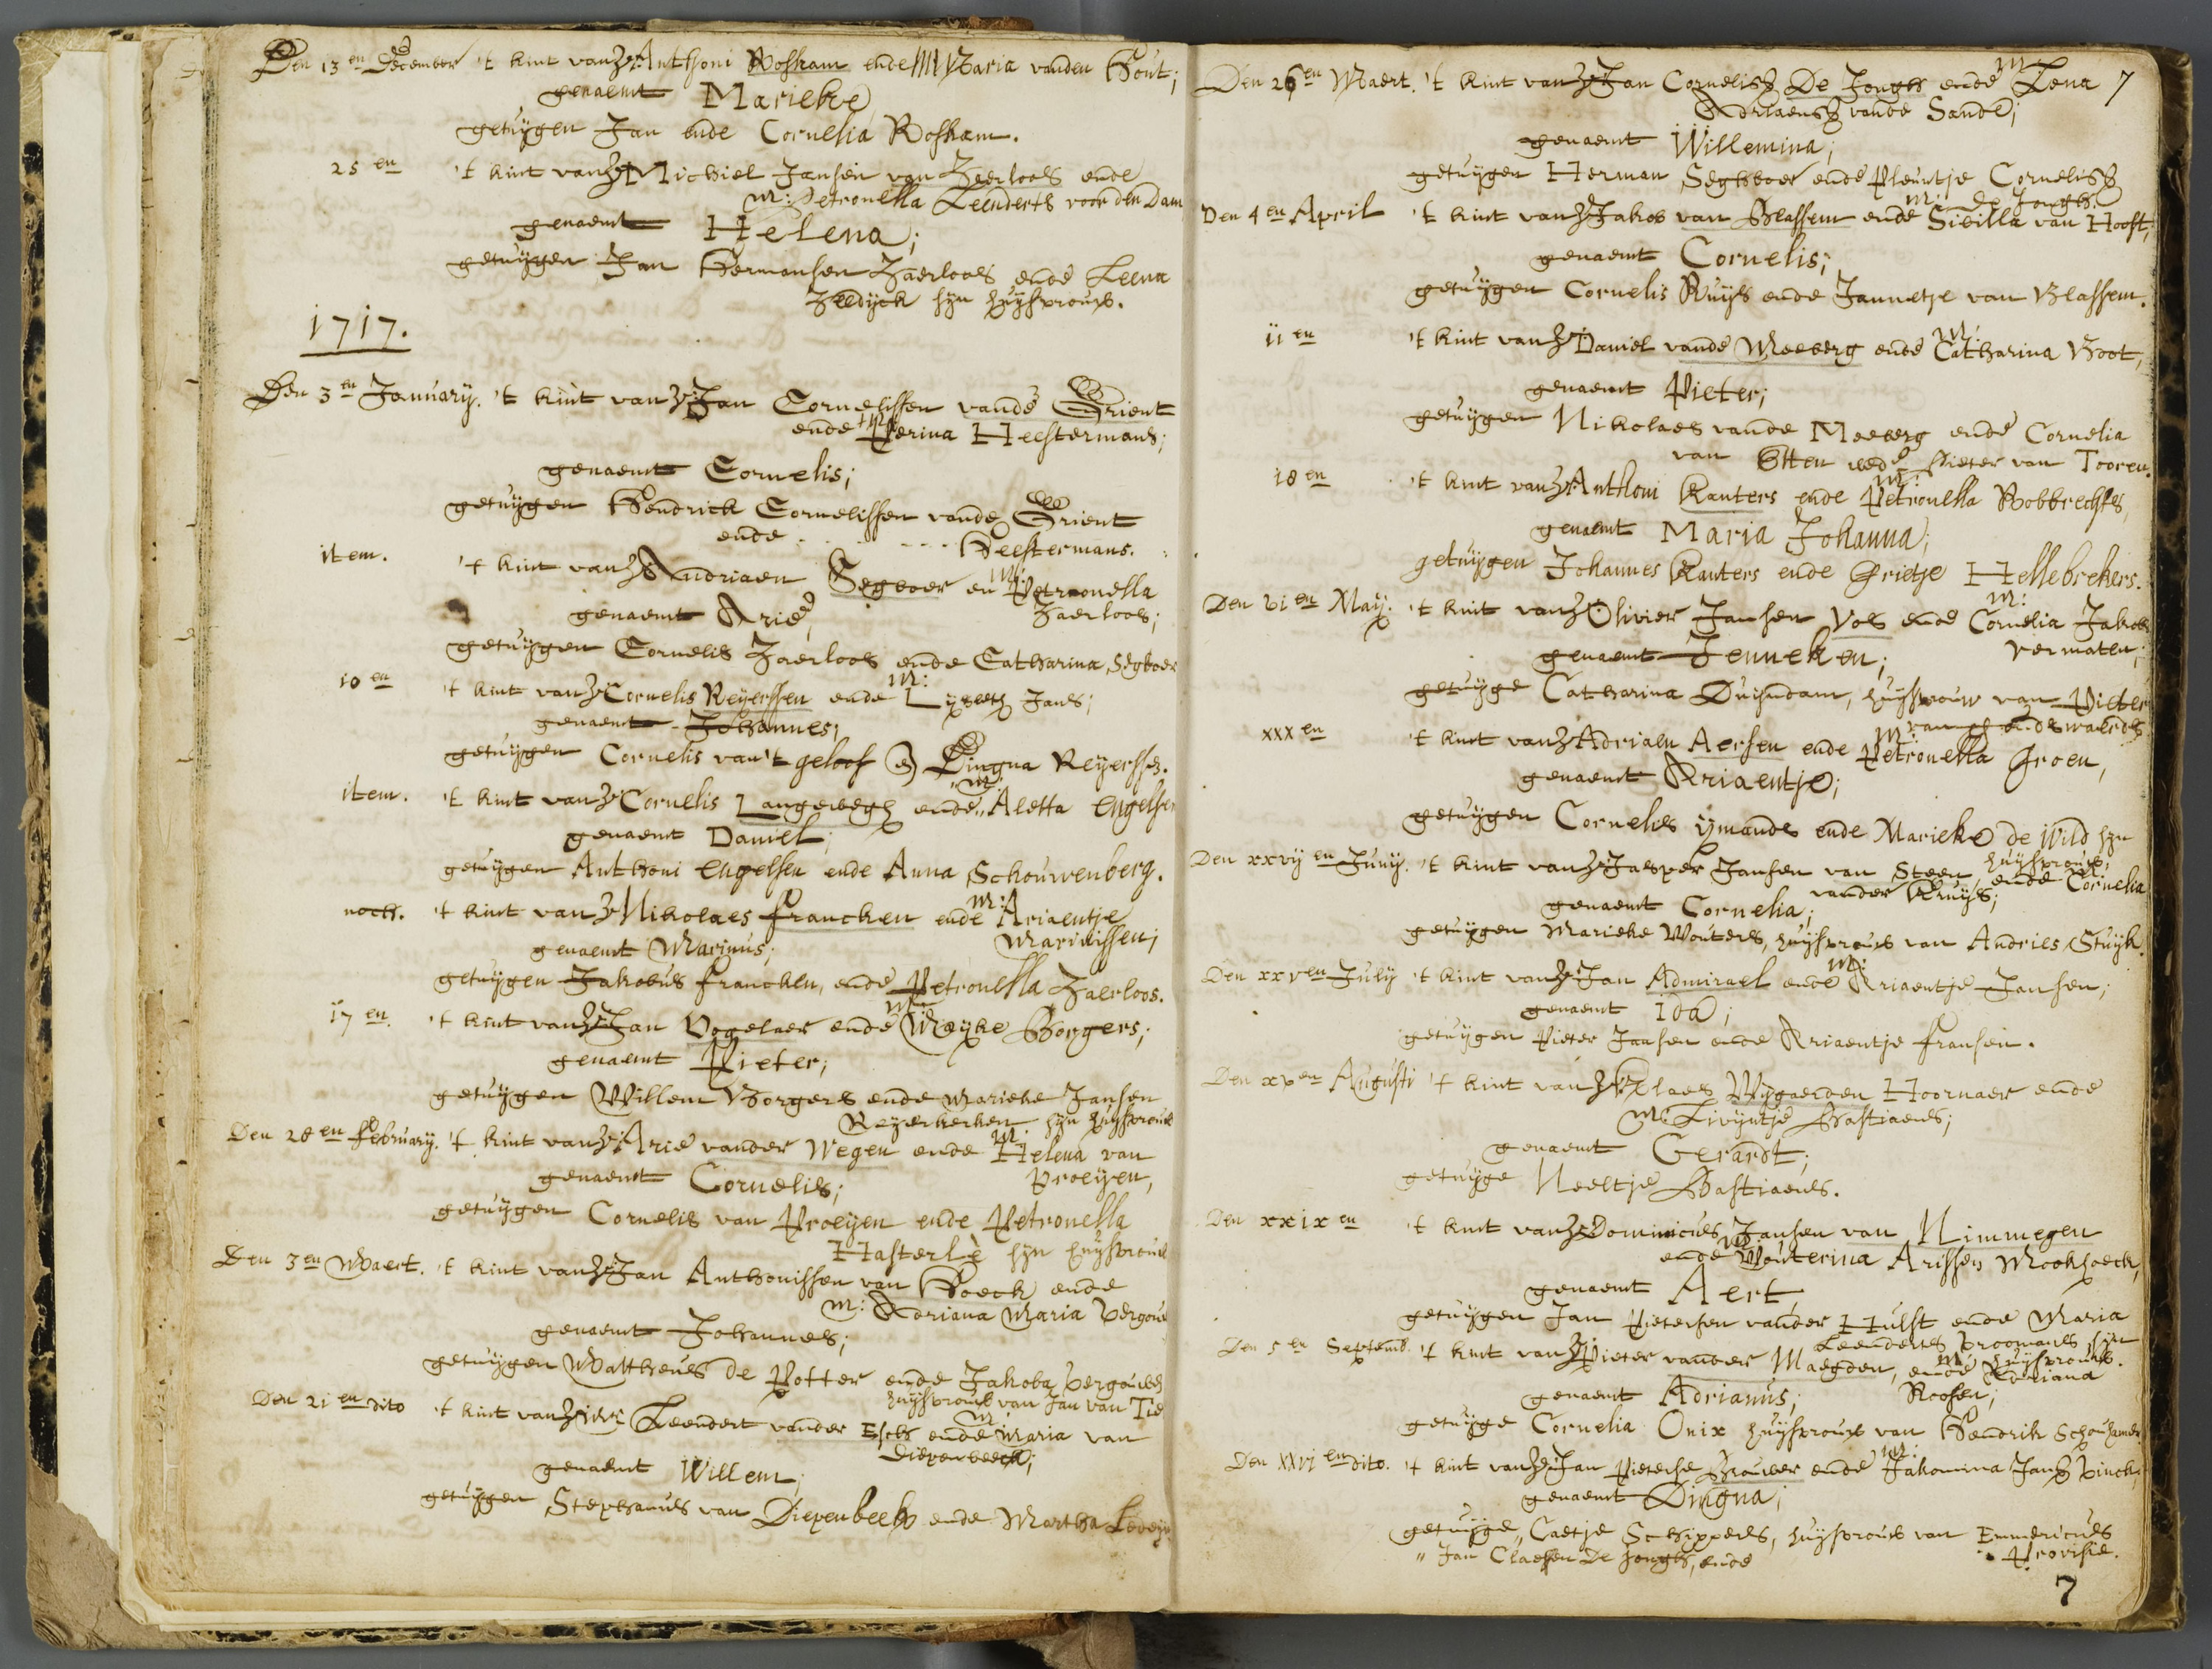 Den 13en December 't kint van V: Anthoni Rosham ende M: Maria vanden Hout;
genaemt Marieke
getuygen Jan ende Cornelia Rosham.
25en 't kint van V: Michiel Jansen van Zaerloos ende
M: Petronella Leenderts voor den Dam
genaemt Helena;
getuygen Jan Hermansen Zaerloos ende Leena
Zeedyck syn huysvrouw.
1717.
Den 3en January. 't kint van V: Jan Cornelissen vande Grient
ende M: Perina Heestermans;
genaemt Cornelis;
getuygen Hendrick Cornelissen vande Grient
ende . . . . . . Heestermans.
item. 't kint van V: Andriaen Segboer en M: Petronella
Zaerloos;
genaemt Arie,
getuygen Cornelis Zaerloos ende Catharina Segboer
10en 't kint van V: Cornelis Reyerssen ende M: Lysbeth Jans;
genaemt Johannes;
getuygen Cornelis van't geloof en Dingna Reyerssz.
item. 't kint van V: Cornelis Langewegh ende M: Aletta Engelsen
genaemt Daniel;
getuygen Anthoni Engelsen ende Anna Schouwenberg.
noch. 't kint van V: Nikolaes Francken ende M: Ariaentje
Marinissen;
genaemt Marinus;
getuygen Jakobus Francken, ende Petronella Zaerloos.
17en 't kint van V: Jan Vogelaer ende M: Mayke Borgers;
genaemt Pieter;
getuygen Willem Borgers ende Marieke Jansen
Reyerkerken syn huysvrouw
Den 28en February. 't kint van V: Arie vander Wegen ende M: Helena van
Proeyen,
genaemt Cornelis;
getuygen Cornelis van Proeyen ende Petronella
Hasterlè syn huysvrouw
Den 3en Maert. 't kint van V: Jan Anthonissen van Hoeck ende
M: Adriana Maria Vergouw
genaemt Johannes;
getuygen Mattheus de Potter ende Jakoba Vergouwen
huysvrouw van Jan van Tie
Den 21en dito 't kint van V: Leendert vander Esch ende M: Maria van
Diepenbeeck;
genaemt Willem;
getuygen Stephanus van Diepenbeek ende Martha
Den 26en Maert. 't kint van V: Jan Cornelisz De Jongh ende M: Lena 7
Adriaensz vande Sande;
genaemt Willemina;
getuygen Herman Seghboer ende Pleuntje Cornelisz
de Jongh.
Den 4en April 't kint van V: Jakob van Blassem ende M: Sibilla van Hooft,
genaemt Cornelis;
getuygen Cornelis Ruys ende Jannetje van Blassem.
11en 't kint van V: Daniel vande Meeberg ende M: Catharina Boot,
genaemt Pieter;
getuygen Nikolaes vande Meeberg ende Cornelia
van Etten wede Pieter van Tooren.
18en 't kint van V: Anthoni Kanters ende M: Petronella Robbrechts,
genaemt Maria Johanna;
getuygen Johannes Kanters ende Grietje Hellebrekers.
Den vien May. 't kint van V: Olivier Jansen Vos ende M: Cornelia Jakobs
Vermaten;
genaemt Jenneken;
getuyge Catharina Duyndam, huysvrouw van Pieter
xxxen 't kint van V: Adriaen Aersen ende M: Petronella Groen,
genaemt Ariaentje;
getuygen Cornelis Ymands ende Marieke de Wild syn
huysvrouw;
Den xxvijen Juny. 't kint van V: Jasper Jansen van Steen ende M: Cornelia
vander Kruys;
genaemt Cornelia;
getuygen Marieke Wouters, huysvrouw van Andries Stuyk.
Den xxven July 't kint van V: Jan Admirael ende M: Ariaentje Jansen;
genaemt Ida;
getuygen Pieter Jansen ende Ariaentje Fransen.
Den xven Augusti 't kint van V: Claes Wygaerden Hoornaer ende
M: Livyntje Bastiaens;
genaemt Gerardt;
getuyge Neeltje Bastiaens.
Den xxixen 't kint van V: Dominicus Jansen van Nimmegen
ende M: Wouterina Arissen Mookhoeck,
genaemt Aert
getuygen Jan Pietersen vander Hulst ende Maria
Leenderts Broomans syn
huysvrouw.
Den 5en Septemb. 't kint van V: Pieter vander Maegden, ende M: Adriana
Roosen;
genaemt Adrianus;
getuyge Cornelia Onix huysvrouw van Hendrik Schouhamer
Den xxvien dito. 't kint van V: Jan Pieterse Brouwer ende M: Jakomina Jansz Vinck;
genaemt Dingna;
getuyge, Caetje Schippers, huysvrouw van Emmericus
Provisie.
" Jan Claessen De Jongh, ende
7